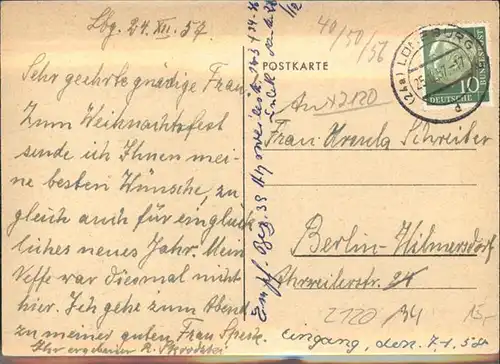 Lbg. 24. XII. 57.
Sehr geehrte gnädige Frau
Zum Weihnachtsfest
sende ich Ihnen mei-
ne besten Wünsche, zu
gleich auch für ein glück
liches neues Jahr. Mein
Neffe war diesmal nicht
hier. Ich gehe zum Abend
zu meiner guten Frau
Ihr ergebener R.
40/50/56
POSTKARTE
(24a) LÜNEBURG
d
10
DEUTSCHE BUNDESPOST
An x 2120
Frau Ursula Schreiber
Berlin-Wilmersdorf
Ahrweilerstr. 24
2120 34 15,-
Eingang, den 7.1.58
Empf. Bez. 33 Ahrweilerstr.